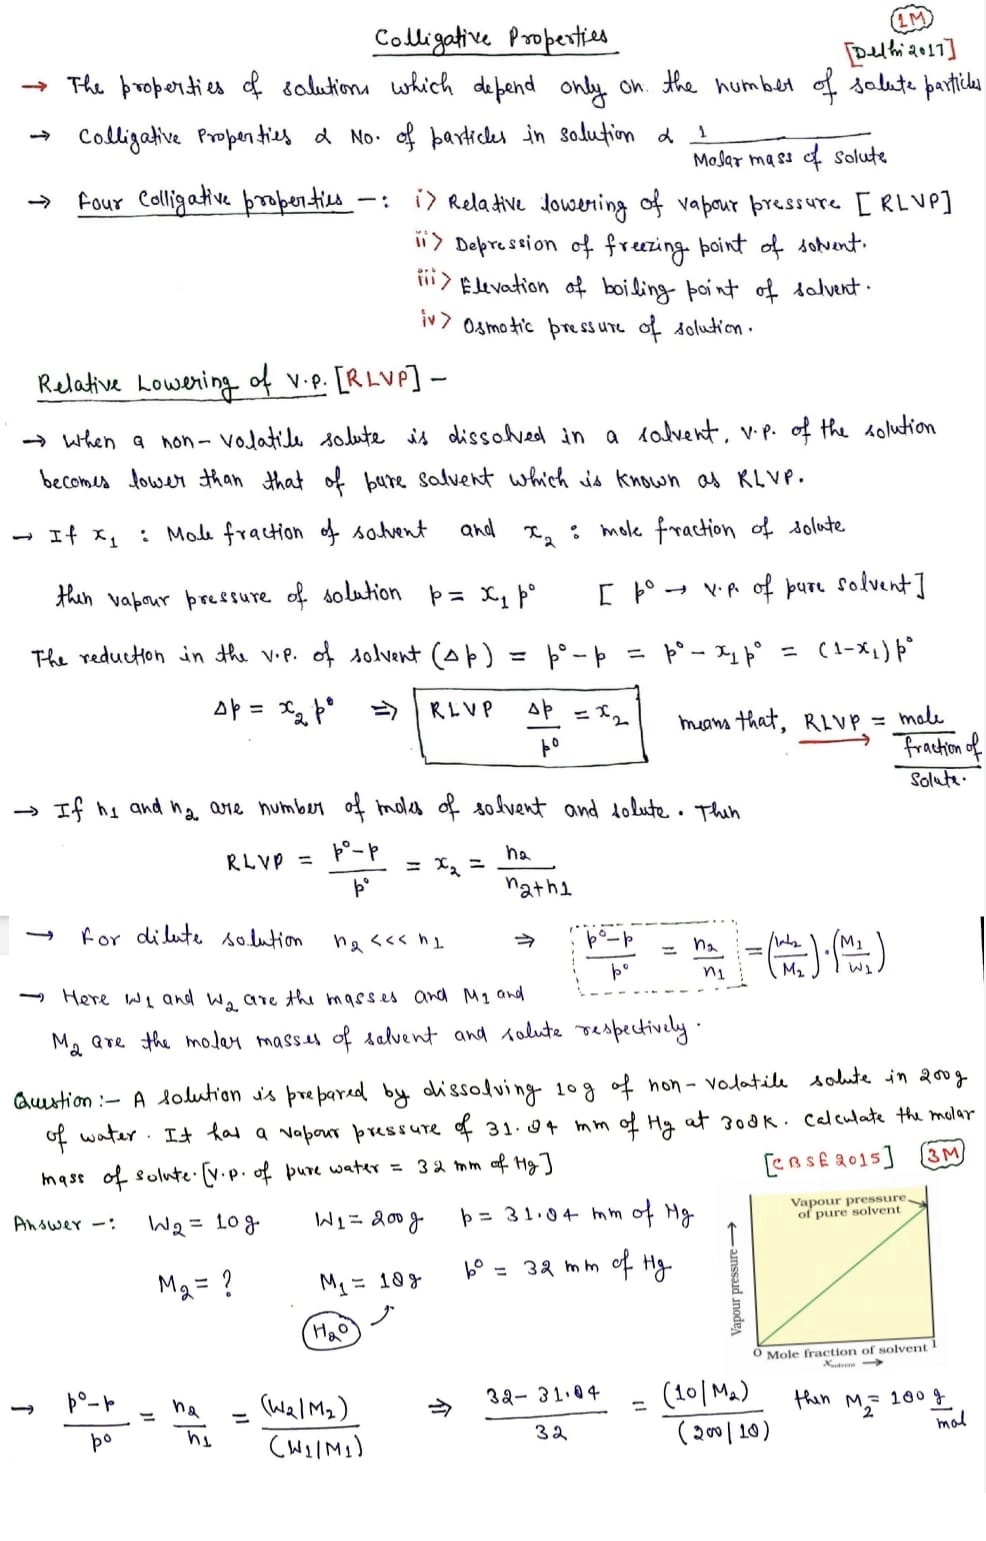 Colligative Properties
1M
[Delhi 2017]
→ The properties of solutions which depend only on the number of solute particles
→ Colligative Properties α No. of particles in solution α 1 / Molar mass of solute
→ Four Colligative properties -: i> Relative lowering of vapour pressure [RLVP]
ii> Depression of freezing point of solvent.
iii> Elevation of boiling point of solvent.
iv> Osmotic pressure of solution.
Relative Lowering of V.P. [RLVP] -
→ When a non-volatile solute is dissolved in a solvent, v.p. of the solution
becomes lower than that of pure solvent which is known as RLVP.
→ If x₁ : Mole fraction of solvent and x₂ : mole fraction of solute
then vapour pressure of solution p = x₁ p° [ p° → v.p. of pure solvent ]
The reduction in the v.p. of solvent (Δp) = p° - p = p° - x₁p° = (1-x₁)p°
Δp = x₂ p° ⇒ RLVP Δp / p° = x₂ means that, RLVP = mole fraction of solute.
→ If n₁ and n₂ are number of moles of solvent and solute. Then
RLVP = p°-p / p° = x₂ = n₂ / n₂+n₁
→ For dilute solution n₂ <<< n₁ ⇒ p°-p / p° = n₂ / n₁ = (W₂ / M₂) · (M₁ / W₁)
→ Here W₁ and W₂ are the masses and M₁ and
M₂ are the molar masses of solvent and solute respectively.
Question :- A solution is prepared by dissolving 10g of non-volatile solute in 200g
of water. It has a vapour pressure of 31.84 mm of Hg at 308K. Calculate the molar
mass of solute. [V.p. of pure water = 32 mm of Hg]
[CBSE 2015] 3M
Answer -: W₂ = 10g W₁ = 200g p = 31.84 mm of Hg
M₂ = ? M₁ = 18g p° = 32 mm of Hg
H₂O
Vapour pressure
of pure solvent
Vapour pressure →
0 Mole fraction of solvent 1
x solvent →
→ p°-p / p° = n₂ / n₁ = (W₂/M₂) / (W₁/M₁) ⇒ 32-31.84 / 32 = (10/M₂) / (200/18) then M₂ = 180 g / mol